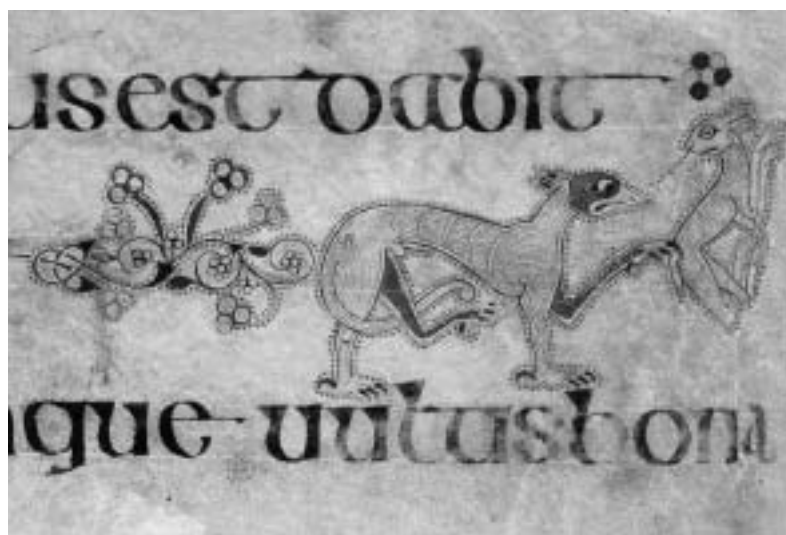 usest dabit
que uultus bona